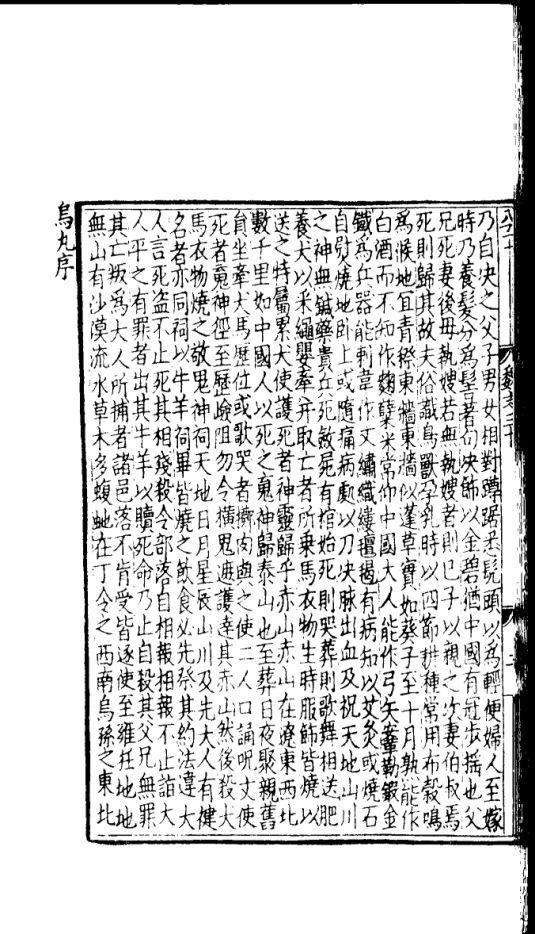 魏志三十
乃自決之父子男女相對蹲踞悉髡頭以爲輕便婦人至嫁
時乃養髮分爲髻著句決飾以金碧猶中國有冠步搖也父
兄死妻後母執嫂若無執嫂者則己子以親之次妻伯叔焉
死則歸其故夫俗識鳥獸孕乳時以四節耕種常用布穀鳴
爲候地宜青穄東牆東牆似蓬草實如葵子至十月熟能作
白酒而不知作麴糱米常仰中國大人能作弓矢鞌勒鍛金
鐵爲兵器能刺韋作文繡織縷氊㲲有病知以艾灸或燒石
自熨燒地臥上或隨痛病處以刀決脉出血及祝天地山川
之神無鍼藥貴兵死斂屍有棺始死則哭葬則歌舞相送肥
養犬以采繩嬰牽并取亡者所乘馬衣物生時服飾皆燒以
送之特屬累犬使護死者神靈歸乎赤山赤山在遼東西北
數千里如中國人以死之魂神歸泰山也至葬日夜聚親舊
員坐牽犬馬歷位或歌哭者擲肉與之使二人口誦呪文使
死者魂神徑至歷險阻勿令橫鬼遮護達其赤山然後殺犬
馬衣物燒之敬鬼神祠天地日月星辰山川及先大人有健
名者亦同祠以牛羊祠畢皆燒之飲食必先祭其約法違大
人言死盜不止死其相殘殺令部落自相報相報不止詣大
人平之有罪者出其牛羊以贖死命乃止自殺其父兄無罪
其亡叛爲大人所捕者諸邑落不肯受皆逐使至雍狂地地
無山有沙漠流水草木多蝮虵在丁令之西南烏孫之東北
烏丸序